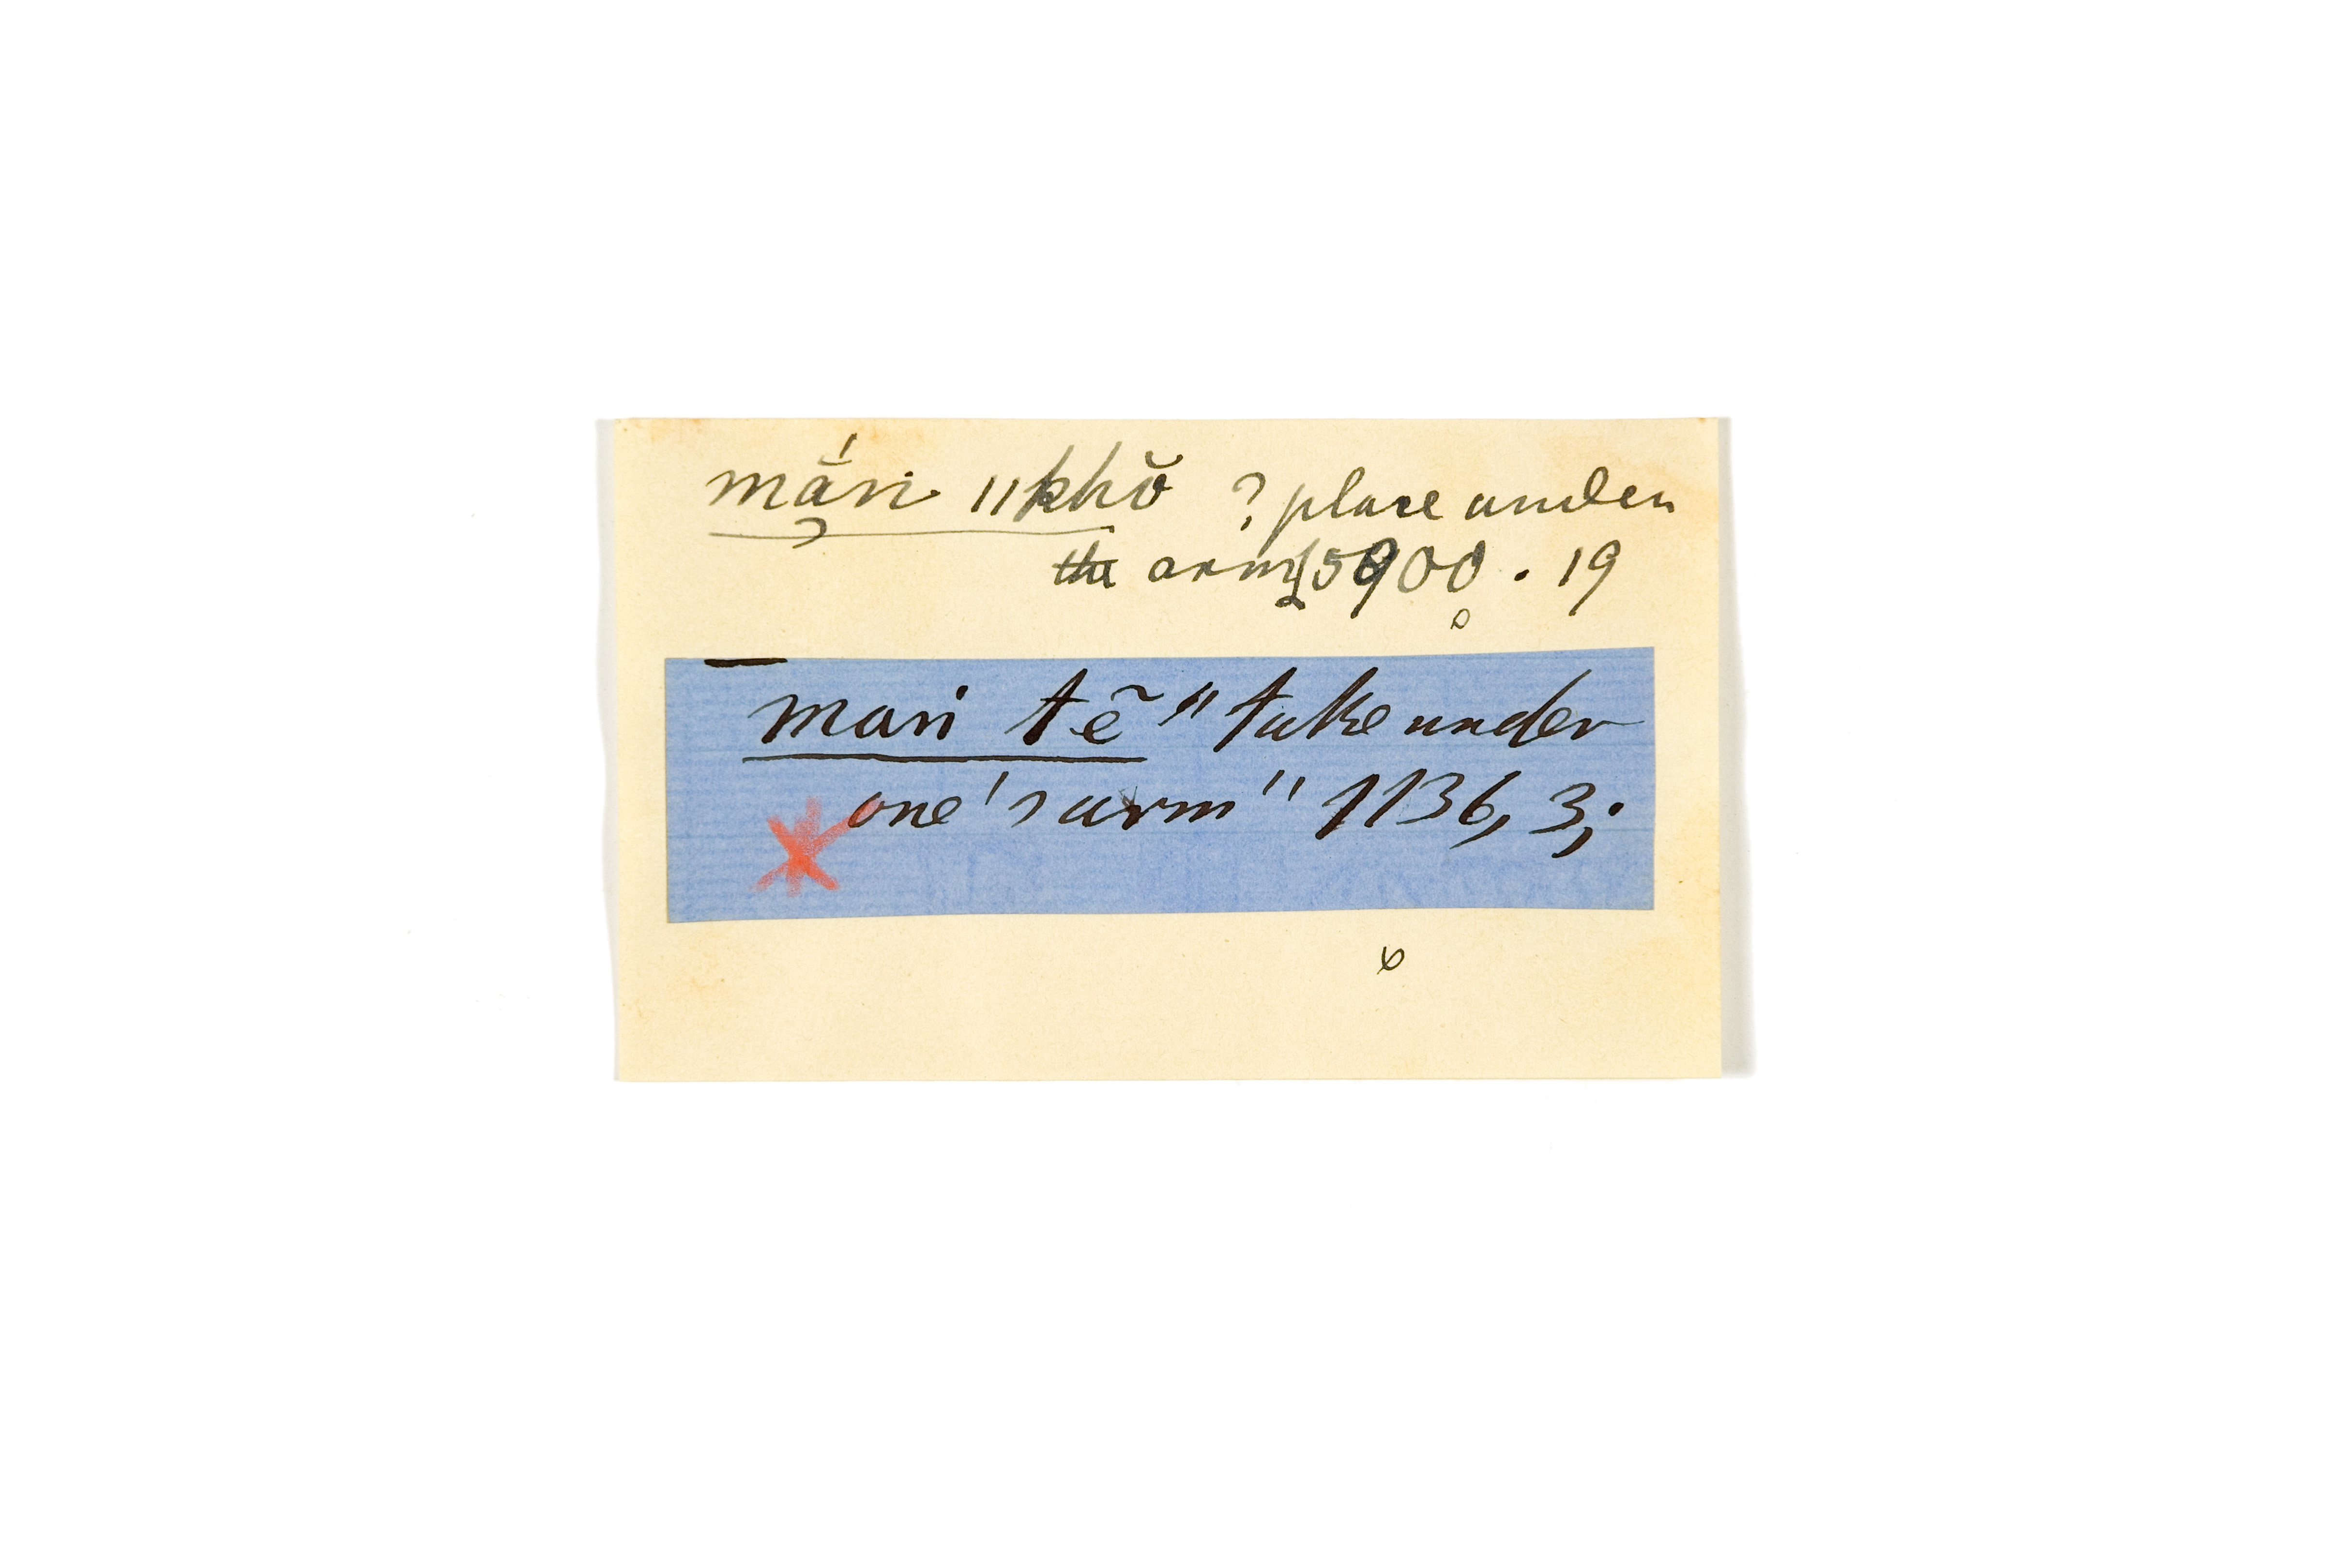 mắri ǁkhŏ ? place under
the arm, 5900. 19
mari tẽ "take under
one's arm" 1136, 3;